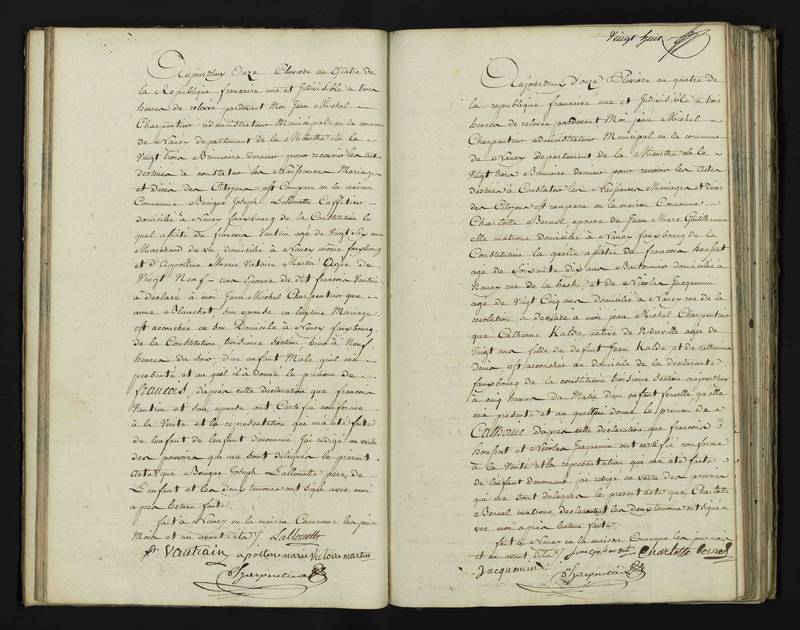 Aujourdhuy Onze Pluviose au quatre de
la République francaise une et Indivisible à trois
heures de relevée pardevant Moi Jean Michel
Charpentier administrateur Municipal en la commune
de Nancy departement de la Meurthe élu le
Vingt trois Brumaire dernier pour recevoir les actes
destinés à constater les Naissances Mariages
et Décès des Citoyens, est Comparu en la maison
Commune Joseph Lallouette Caffetier
domicilié à Nancy fauxbourg de la Constitution le
quel assisté de françois Vautrin agé de Vingt Six ans
Marchand de vin domicilié à Nancy même fauxbourg
et d'Appolline Marie Victoire Martin Agée de
Vingt Neuf ans Epouse du dit françois Vautrin
à déclaré à moi Jean Michel Charpentier que
anne Blanchot son epouse en légitime Mariage
est accouchée en son Domicilé à Nancy fauxbourg
de la Constitution troisieme Section hier à Neuf
heures du Soir d'un enfant Male quil ma
presenté et au quel il à donné le prenom de
françois, d'après cette déclaration que francois
Vautrin et Son epouse ont Certifié conforme
à la Verité et la représentation qui ma été faite
de lenfant de lenfant dénommé jai rédigé en vertu
des pouvoirs qui me sont délégués le présent
acte que Joseph Lallouette pere de
L'enfant et les deux temoins ont Signé avec moi
après lecture faite.
fait à Nancy en la maison Commune les jour
Mois et an avant dits Lallouette
fr Vautrain, apollon marie victoire martin
Charpentier
Vingt huit
Aujourdhuy Douze Pluviose au quatre de
la republique francaise une et Indivisible à trois
heures de relevée pardevant Moi jean Michel
Charpentier administrateur Municipal en la commune
de Nancy departement de la Meurthe élu le
Vingt trois Brumaire dernier pour recevoir les actes
destinés à Constater les Naissances Mariages et Décès
des Citoyens est comparu en la maison Commune
Charlotte epouse de Jean Marc
elle matrone domiciliée à Nancy fauxbourg de la
Constitution la quelle assistée de francois
agé de Soixante dix ans domicilié à
Nancy rue de la hache, et de Nicolas Jacquemin
agé de Vingt Cinq ans domicilié à Nancy rue de la
revolution à déclaré à moi jean Michel Charpentier
que Catherine Kalde, native de agée de
Vingt ans fille de defunt Jean Kalde et de catherine
est accouchée au domicile de la déclarante
fauxbourg de la constitution troisieme Section aujourdhuy
à cinq heures du Matin d'un enfant femelle quelle
ma presenté et au quel elle donne le prenom de
Catherine d'après cette déclaration que francois
et Nicolas Jacquemin ont certifié conforme
à la Verité et la représentation qui ma été faite
de lenfant dénommé jai rédigé en vertu des pouvoirs
qui me sont délégués le présent acte que Charlotte
matrone déclarante et les deux temoins ont Signé a
vec moi après lecture faite.
fait à Nancy en la maison Commune les jour mois
et an avant dits Charlotte
Jacquemin Charpentier